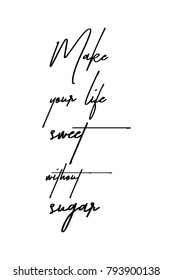 Make
your life
sweet
without
sugar
shutterstock.com · 793900138